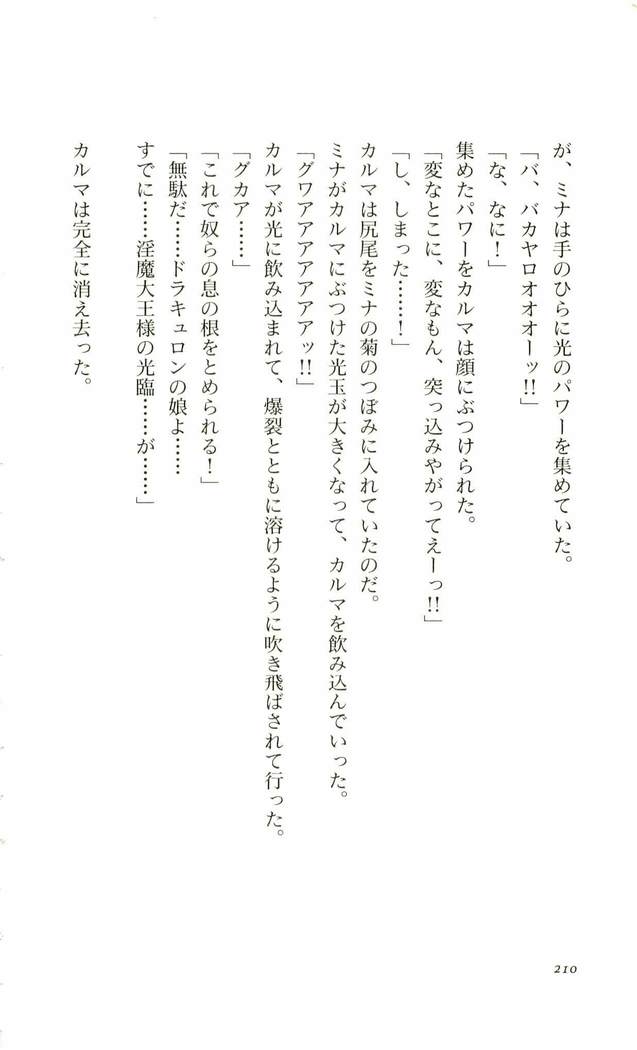 が、ミナは手のひらに光のパワーを集めていた。
「バ、バカヤロオオオーッ!!」
「な、なに！」
集めたパワーをカルマは顔にぶつけられた。
「変なとこに、変なもん、突っ込みやがってえーっ!!」
「し、しまった……！」
カルマは尻尾をミナの菊のつぼみに入れていたのだ。
ミナがカルマにぶつけた光玉が大きくなって、カルマを飲み込んでいった。
「グワアアアアアアアッ!!」
カルマが光に飲み込まれて、爆裂とともに溶けるように吹き飛ばされて行った。
「グカア……」
「これで奴らの息の根をとめられる！」
「無駄だ……ドラキュロンの娘よ……
すでに……淫魔大王様の光臨……が……」
カルマは完全に消え去った。
210